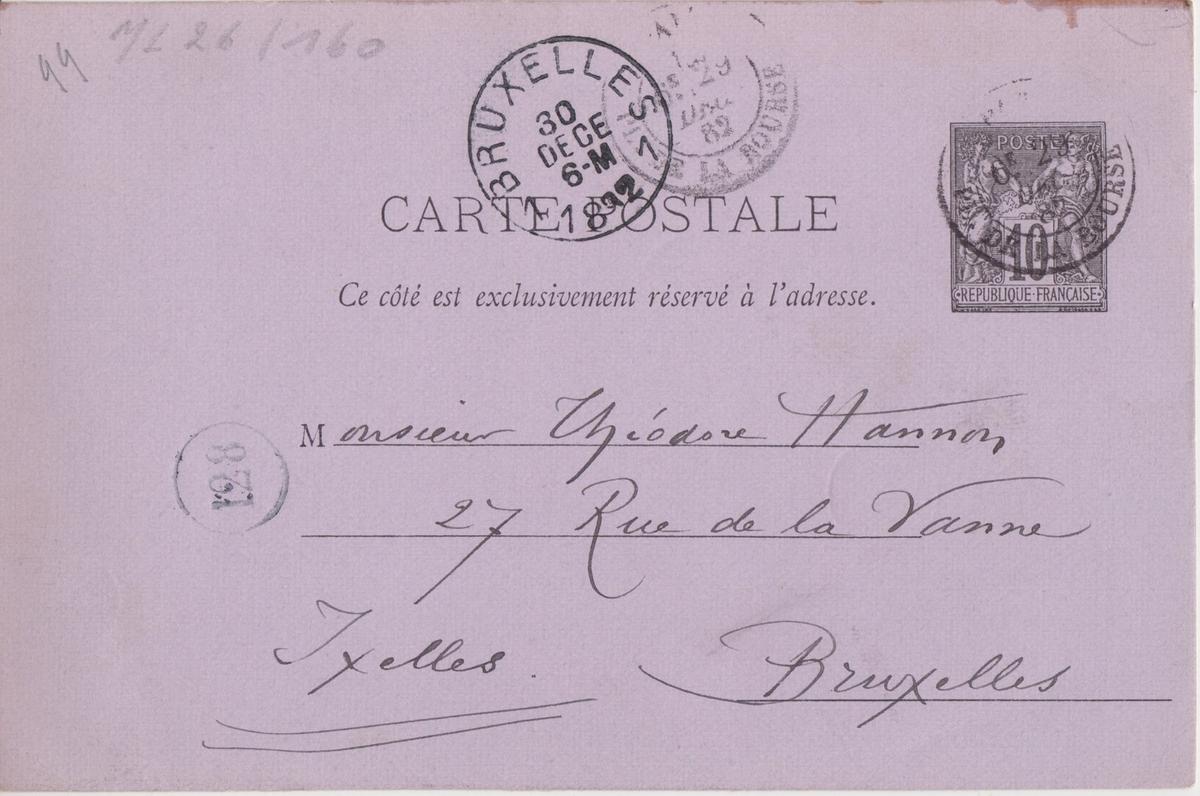 99 ML 26/160
BRUXELLES
30
DECE
6-M
1 1882 1
29
DEC
82
DE LA BOURSE
CARTE POSTALE
POSTES
10
REPUBLIQUE FRANÇAISE
82
DE LA BOURSE
Ce côté est exclusivement réservé à l'adresse.
Monsieur Théodore Hannon
27 Rue de la Vanne
Ixelles. Bruxelles